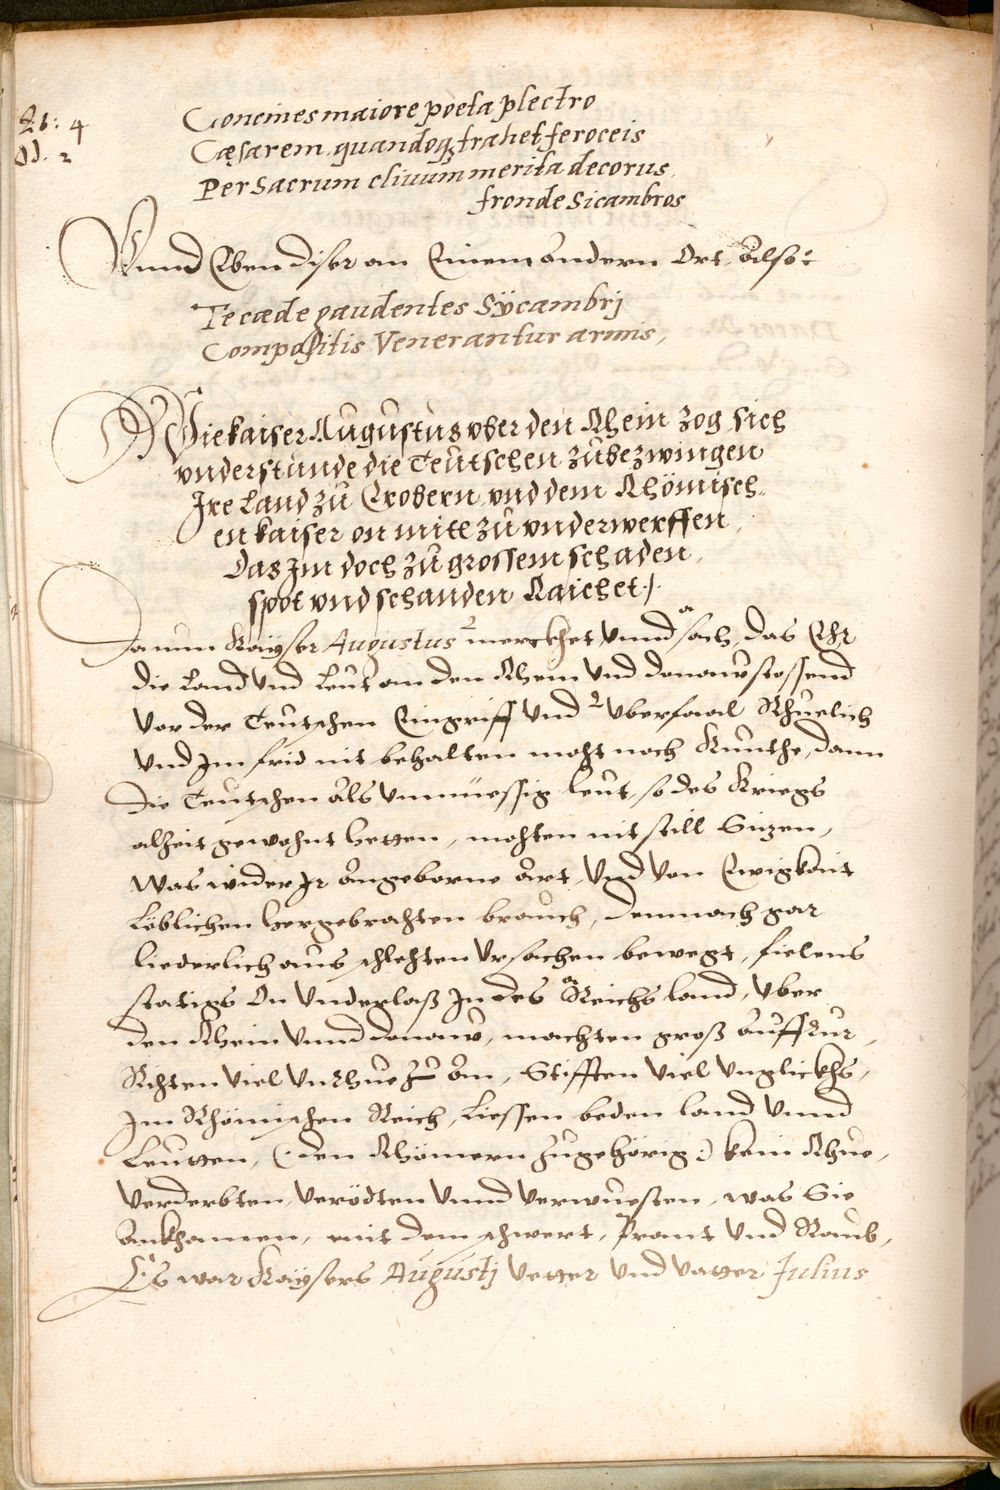 Lib: 4
Od. 2
Concines maiore poeta plectro
Cæsarem quandoq; trahet feroceis
Per Sacrum clivum merita decorus
fronde Sicambros
Vnnd Eben diser an Einem andern Ort, also:
Te cæde gaudentes Sÿcambrj
Compositis Venerantur armis,
Wie kaiser Augustus vber den Rhein zog, sich
vnderstünde die Teutschen zübezwingen
Jre Land zü Erobern, vnd dem Rhömisch-
en kaiser on mitl zü vnderwerffen,
Das Jm doch zü grossem schaden,
spot vnd schanden Raichet ./.
Da nun Kaÿser Augustus merckhet, vnnd sach, das Ehr
die Land vnd Leut an den Rhein vnd donaw stossend
vor der Teutschen Eingriff vnd vberfaal Rhuelich
vnd Jm frid nit behalten moht noch Kunthe, dann
die Teutschen als vnmüessig leut, so des Kriegs
alzeit gewohnt hetten, mohten nit still Sizen,
Was wider Jr angeborne art, vnd von Ewigkait
Löblichen hergebrachten brauch, demnach gar
liederlich aus schlehten vrsachen bewegt, fielens
statigs On vnderlaß Jn des Reichs land, vber
den Rhein vnnd donaw, machten groß auffrur,
Rihten viel vnrhue zu an, Stifften viel vnglickhs,
Jm Rhömischen Reich, Liessen beden land vnnd
Leutten, (: den Rhömern zugehörig :) kein Rhue,
verderbten, verödten vnnd verwuesten, was Sie
ankhamen, mit dem schwert, Prant vnd Raub,
Es war Kaÿsers Augustj vetter vnd vatter Julius